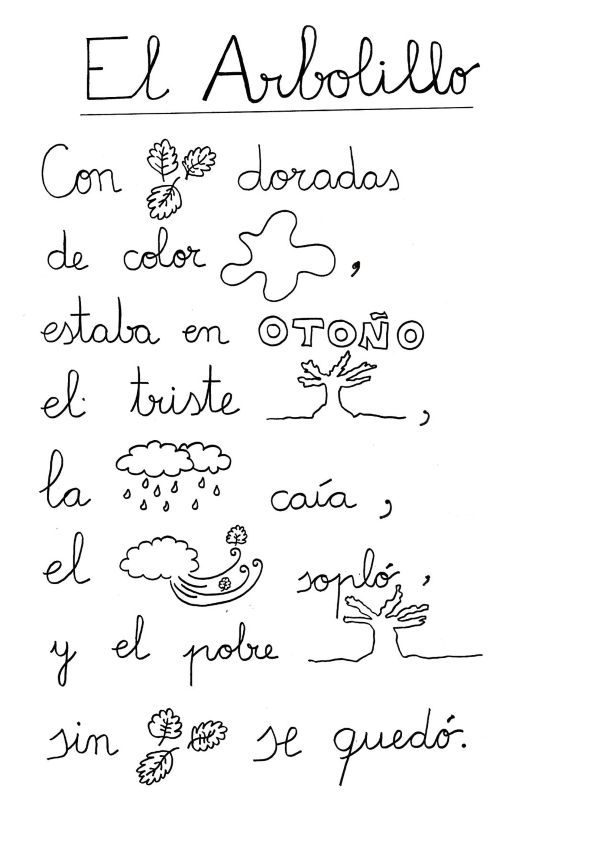 El Arbolillo
Con doradas
de color ,
estaba en OTOÑO
el triste ,
la caía ,
el sopló ,
y el pobre
sin se quedó.